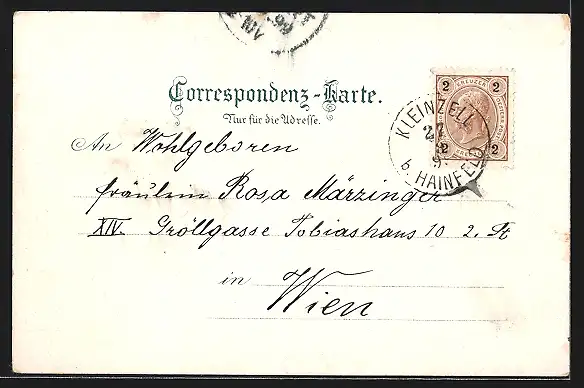 Correspondenz-Karte.
Nur für die Adresse.
2 KREUZER 2
2 2
KLEINZELL
27
b. HAINFELD
An Wohlgeboren
fräulein Rosa Märzinger
XIV. Gröllgasse Tobiashaus 10 2. St
in
Wien